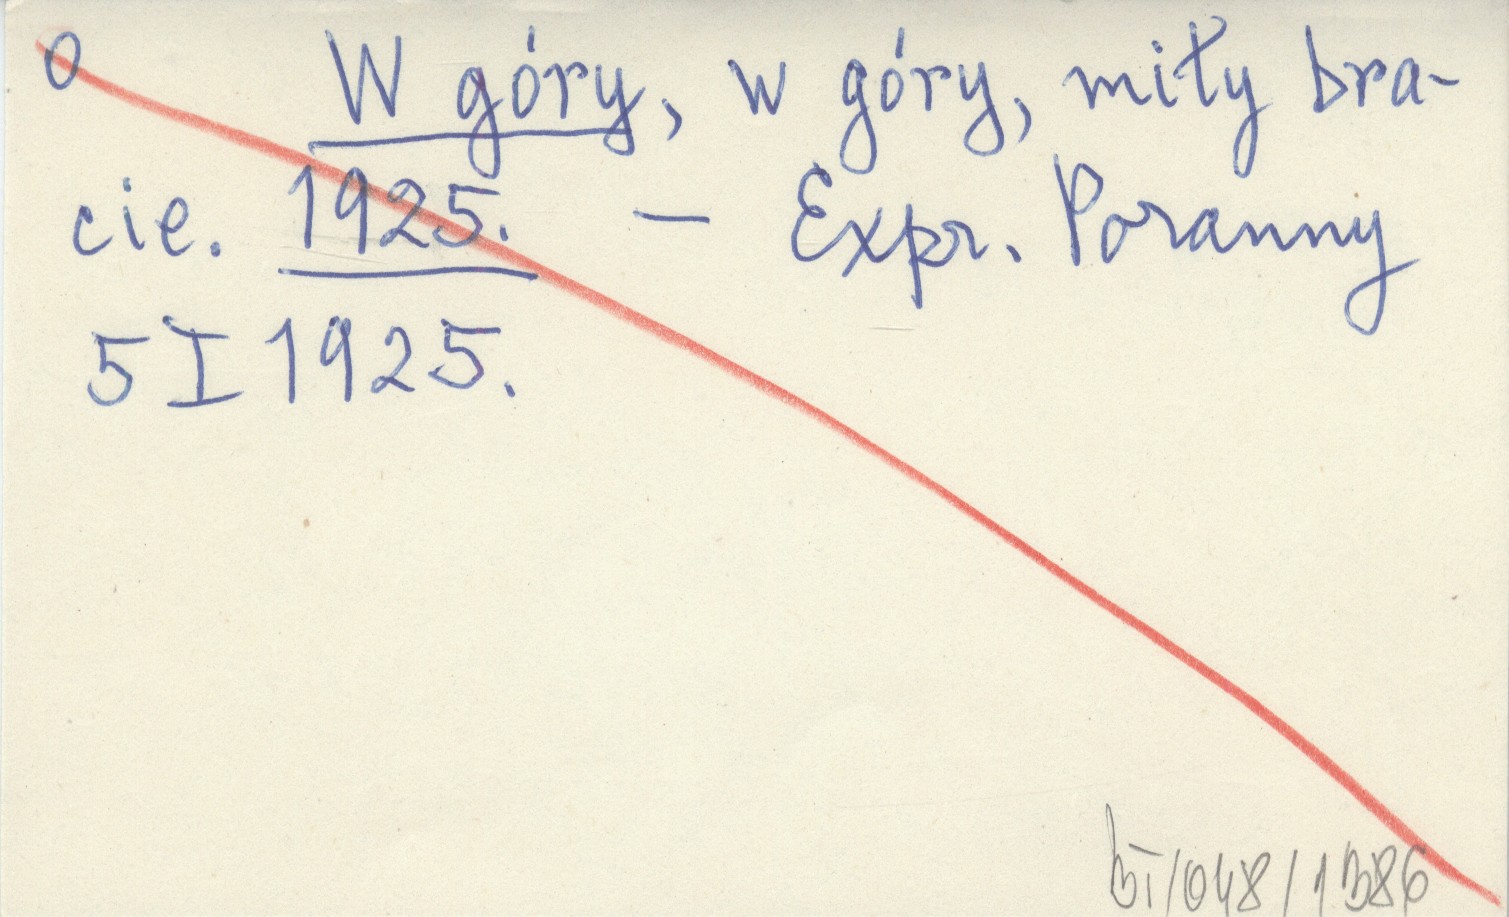 0 W góry, w góry, miły bra-
cie. 1925. — Expr. Poranny
5 I 1925.
bī/048/1386